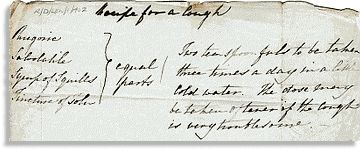 Recipe for a Cough
Paregoric
Salvolatile
Syrup of Squills
Tincture of Tolu
equal
parts
Two teaspoonfuls to be taken
three times a day in a little
cold water. The dose may
be taken oftener if the cough
is very troublesome.